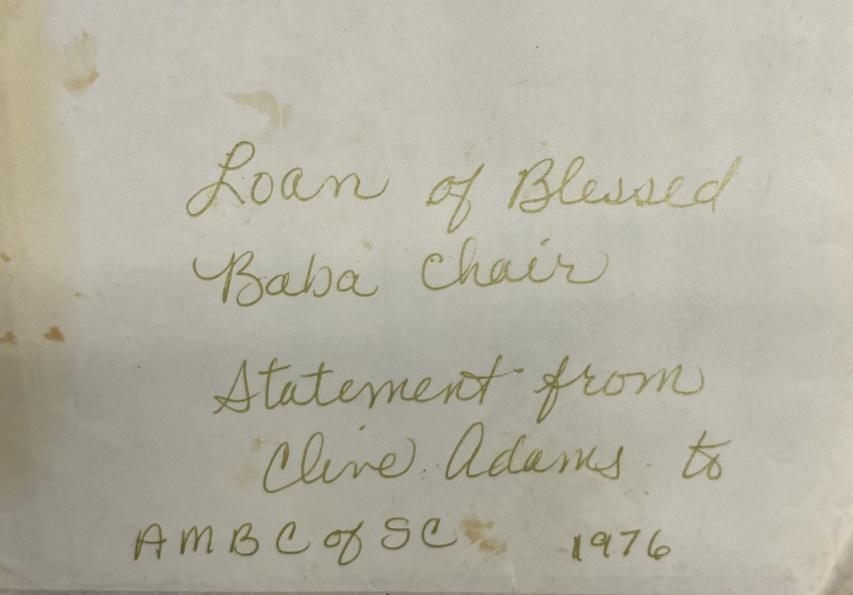 Loan of Blessed
Baba Chair
Statement from
Clive Adams to
AMBC of SC 1976